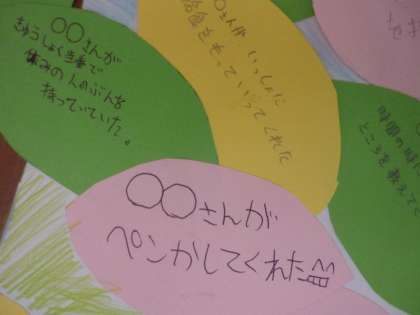 〇〇さんが
きゅうしょく当番で
休みの人のぶんを
持っていていた。
〇〇さんが いっしょに
給食をもっていってくれた
〇〇さんが
ペンかしてくれた
ところを教えて